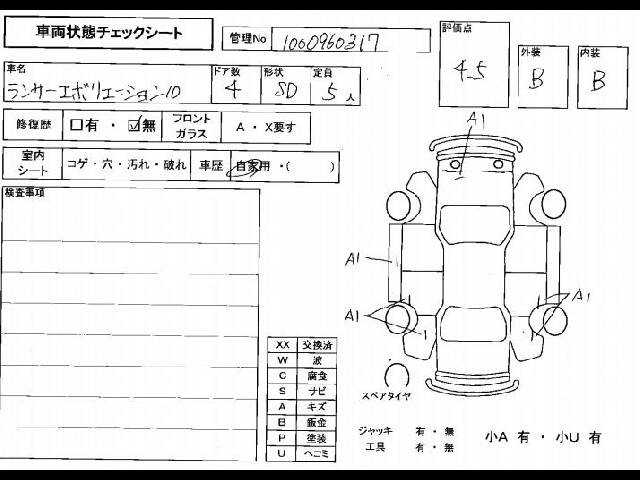 車両状態チェックシート
管理No 1000960317
評価点
4.5
外装
B
内装
B
車名
ランサーエボリューション10
ドア数
4
形状
SD
定員
5人
修復歴 □有・☑無
フロントガラス A・X要す
室内シート コゲ・穴・汚れ・破れ
車歴 自家用・( )
検査事項
A1
A1
A1
A1
XX 交換済
W 波
C 腐食
S サビ
A キズ
B 鈑金
P 塗装
U ヘコミ
スペアタイヤ
ジャッキ 有・無
工具 有・無
小A 有・小U 有